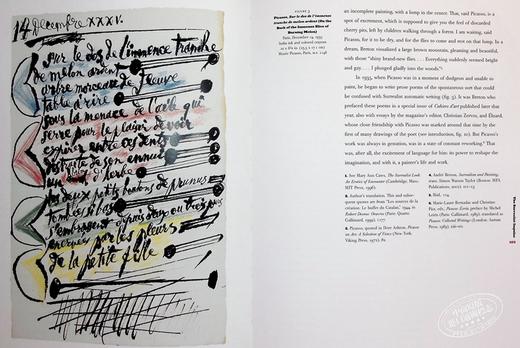 14 Décembre XXXV.
sur le dos de l'immense tranche
de melon ardent
arbre morceau de fleuve
table à rire
sous la menace de l'aile qui
serre pour le plaisir de voir
expirer entre ses dents
distraite de son ennui
un d'herbe
les deux petits de prunus
tombés si bas
s'embrassent
par les pleurs
de la petite fille
FIGURE 5
Picasso, Sur le dos de l'immense
tranche de melon ardent (On the
Back of the Immense Slice of
Burning Melon)
Paris, December 14, 1935
India ink and colored crayons
Musée Picasso, Paris,
an incomplete painting, with a lump in the center. That, said Picasso, is a
spot of excrement, which is supposed to give you the feel of discarded
cherry pits, left by children walking through a forest. I am waiting, said
Picasso, for it to be dry, and for the flies to come and rest on that lump. In a
dream, Breton visualized a large brown mountain, gleaming and beautiful,
with those "shiny brand-new flies. . . . Everything suddenly seemed bright
and gay. . . . I plunged gladly into the woods."
In 1935, when Picasso was in a moment of dudgeon and unable to
paint, he began to write prose poems of the spontaneous sort that could
be confused with Surrealist automatic writing (fig. 5). It was Breton who
prefaced these poems in a special issue of Cahiers d'art published later that
year, also with essays by the magazine's editor, Christian Zervos, and Éluard,
whose close friendship with Picasso was marked around that time by the
first of many drawings of the poet (see introduction, fig. 10). But Picasso's
work was always in gestation, was in a state of constant reworking. That
was, after all, the excitement of language for him: its power to reshape the
imagination, and with it, a painter's life and work.
1. See Mary Ann Caws, The Surrealist Look:
An Erotics of Encounter (Cambridge, Mass.:
MIT Press, 1996).
2. Author's translation. This and subse-
quent quotes are from "Les sources de la
création: Le buffet du Catalan," 1944 in
Robert Desnos: Oeuvres (Paris: Quarto
Gallimard, 1999),
3. Picasso, quoted in Dore Ashton, Picasso
on Art: A Selection of Views (New York:
Viking Press, 1972), 82.
4. André Breton, Surrealism and Painting,
trans. Simon Watson Taylor (Boston: MFA
Publications, 2002),
5. Ibid.,
6. Marie-Laure Bernadac and Christine
Piot, eds., Picasso: Écrits, preface by Michel
Leiris (Paris: Gallimard, 1989); translated as
Picasso: Collected Writings (London: Aurum
Press, 1989),
The Surrealist Surprise